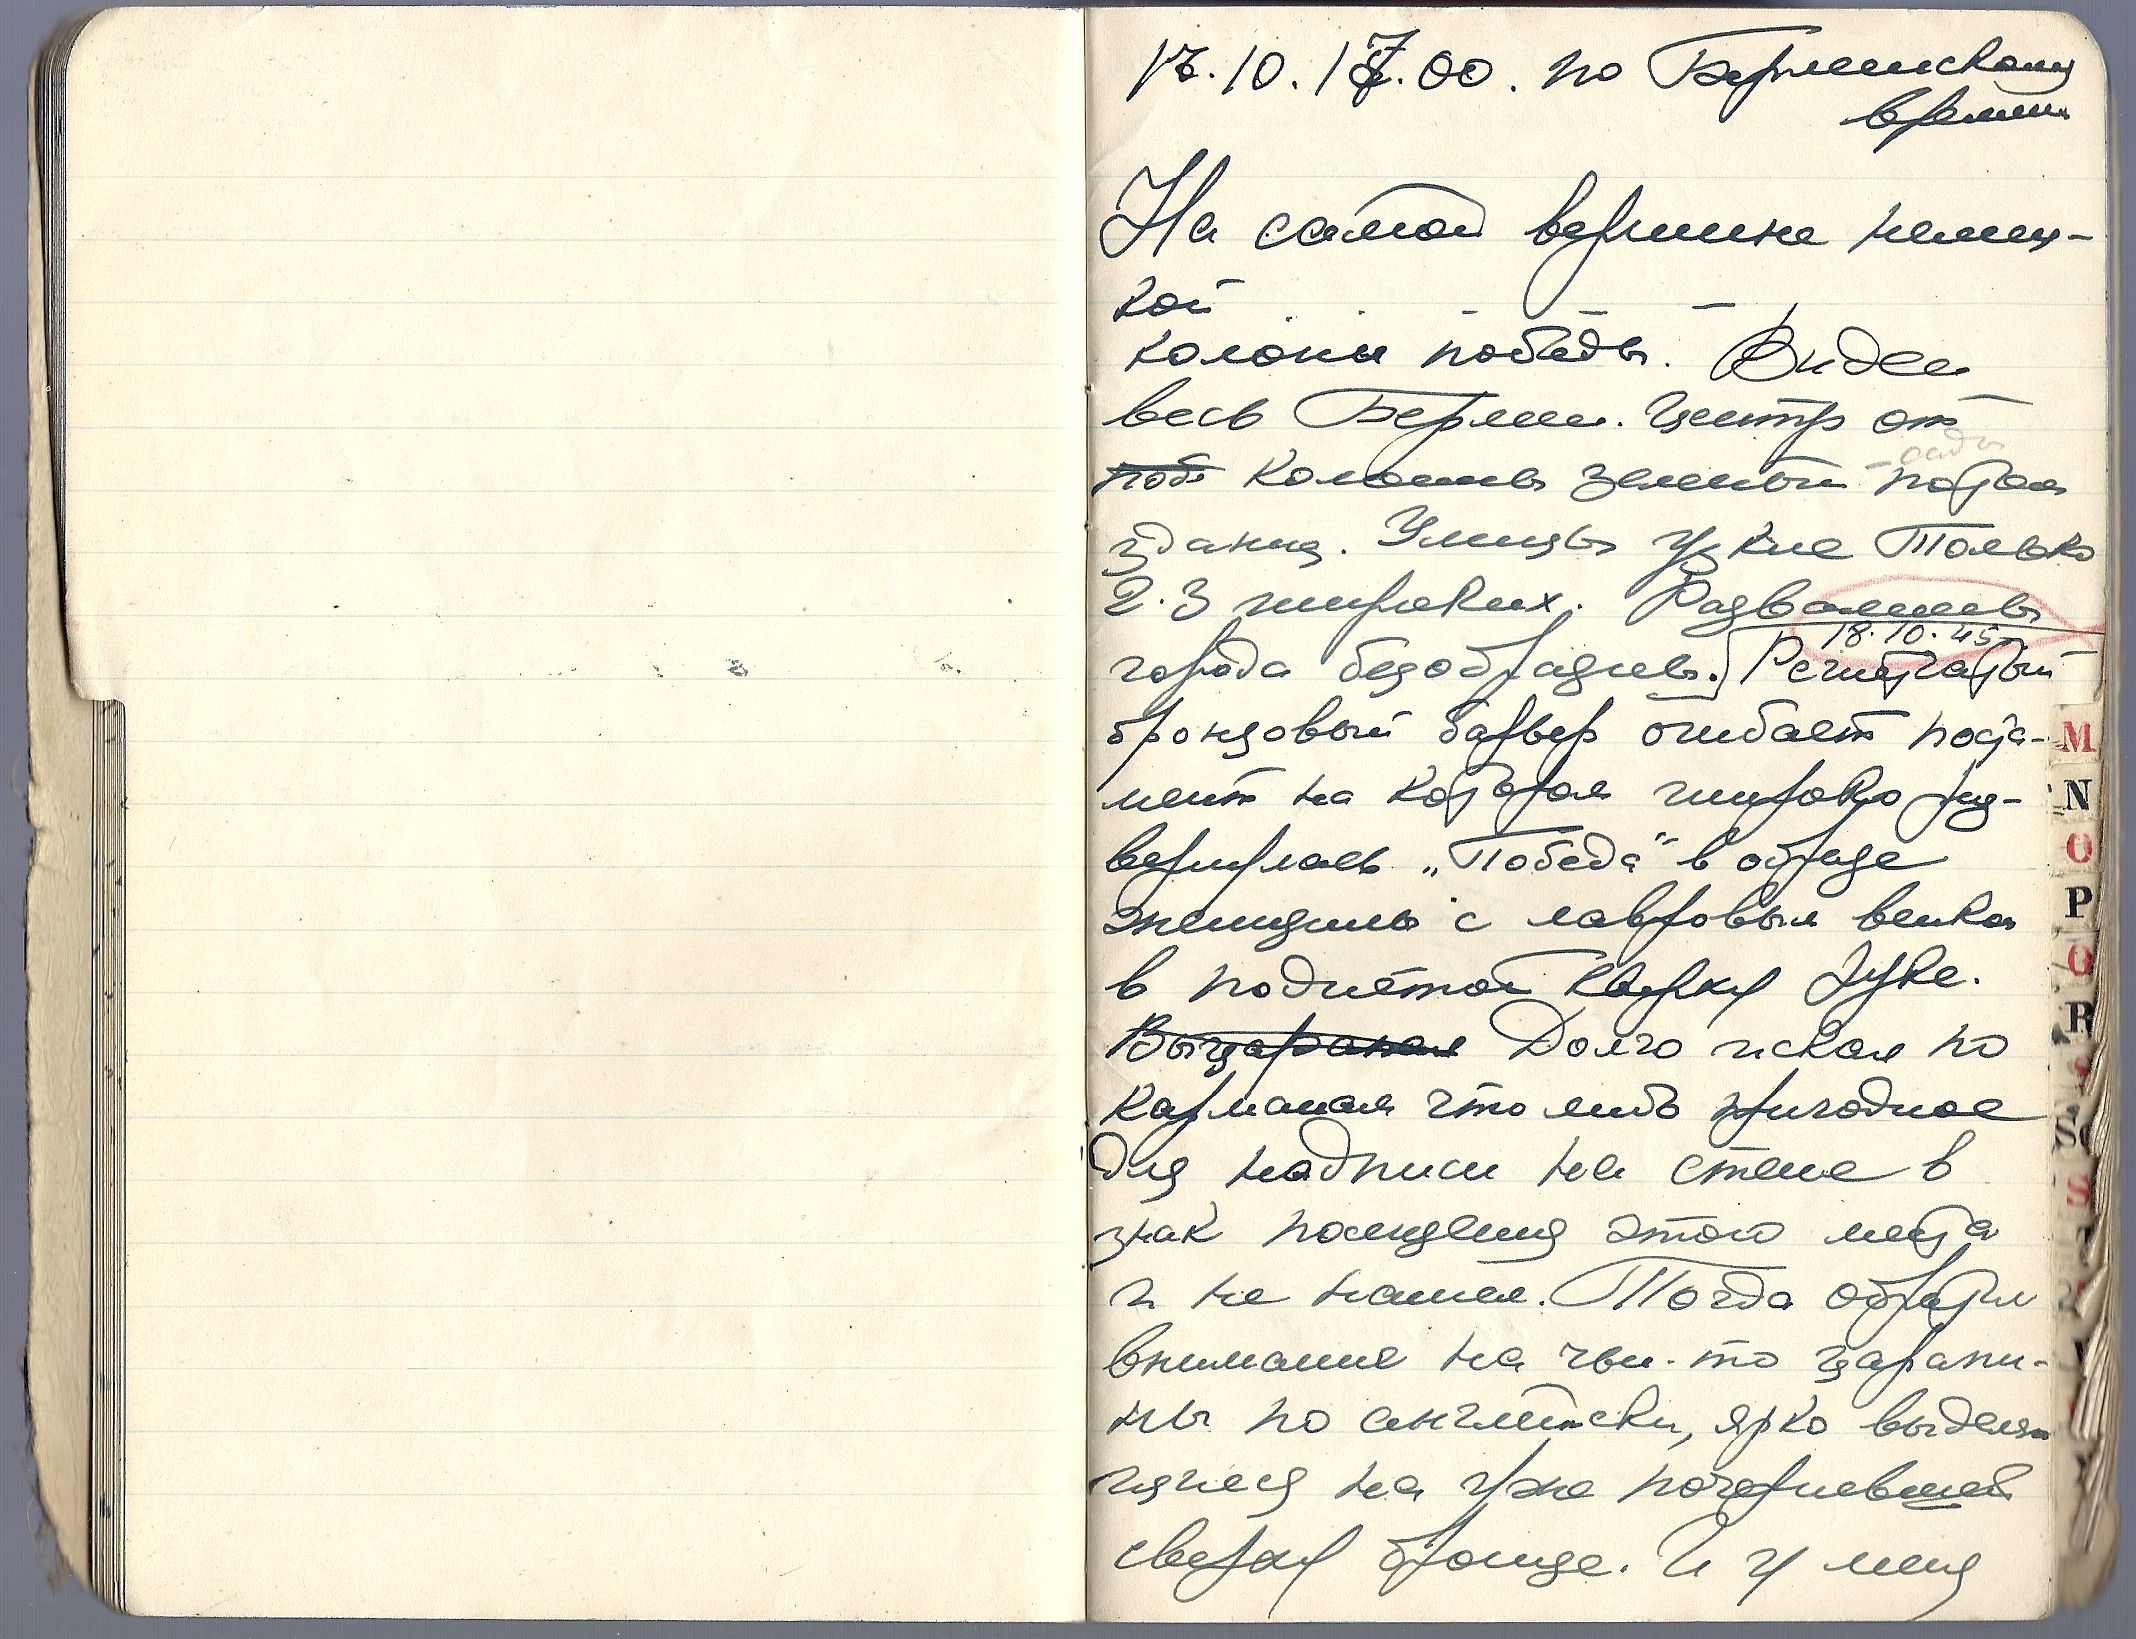 17.10. 17.00. по Берлинскому
времени
На самой вершине немец-
кой
колоны победы. Виден
весь Берлин. Центр от
колонны зеленый
сады
здания. Улицы узкие Только
2-3 широких. Развалины
18.10.45
города безобразны. Решетчатый
бронзовый барьер огибает поста-
мент на котором широко раз-
вернулась „Победа" в образе
женщины с лавровым венком
в поднятой кверху руке.
Выцарапал Долго искал по
карманам что либо пригодное
для надписи на стене в
знак посещения этого места
и не нашел. Тогда обратил
внимание на чьи-то царапи-
ны по английски, ярко выделяю
щиеся на уже почерневшей
сверху бронзе. И у меня
M
N
O
P
Q
R
S